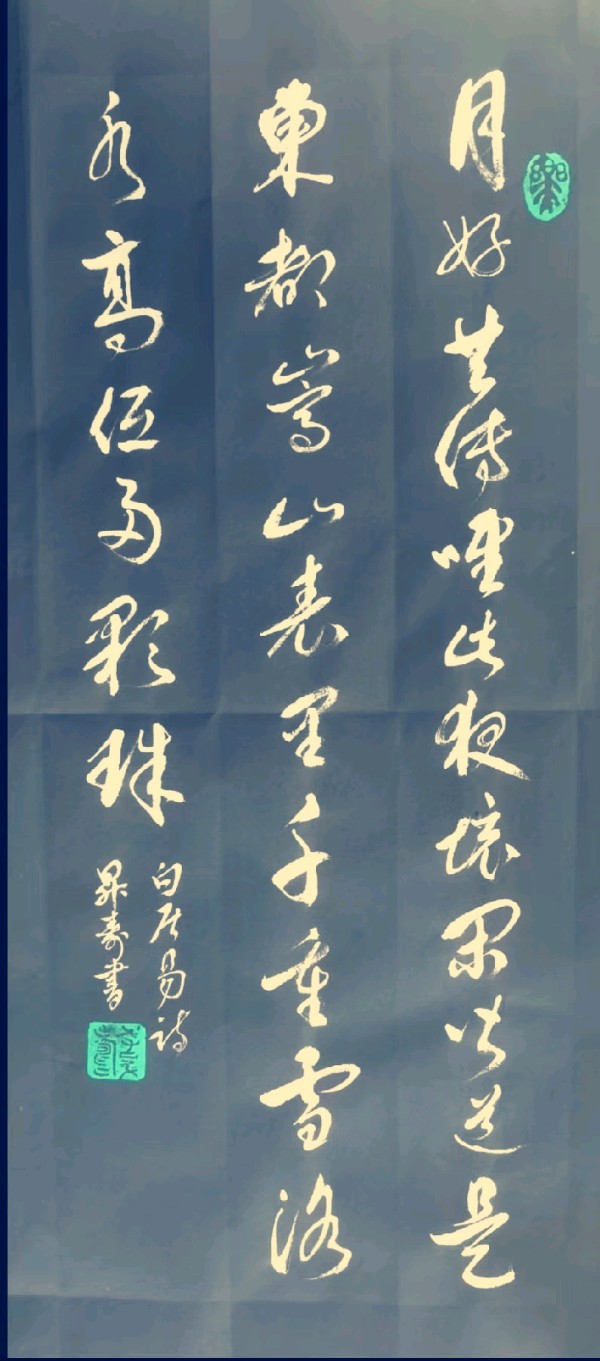 月好共傳唯此夜境閑皆道是
東都嵩山表里千重雪洛
水高低两顆珠
白居易詩
壽書